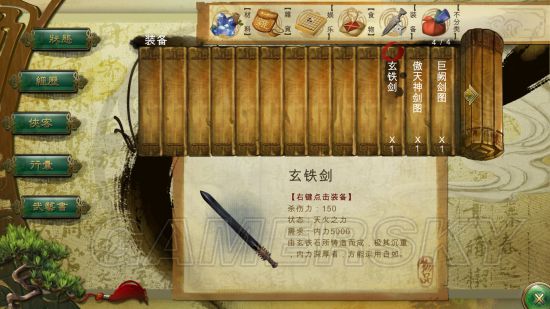 狀態
經歷
俠客
行囊
武藝書
【材料】
【雜貨】
【娱乐】
【食物】
【装备】
【不分类】
装备
4 / 4
玄铁剑
X 1
傲天神剑图
X 1
巨阙剑图
X 1
玄铁剑
【右键点击装备】
杀伤力：150
状态：天火之力
需求：内力5000
由玄铁石所铸造而成，极其沉重，
内力深厚者，方能运用自如。
GAMERSKY
物品